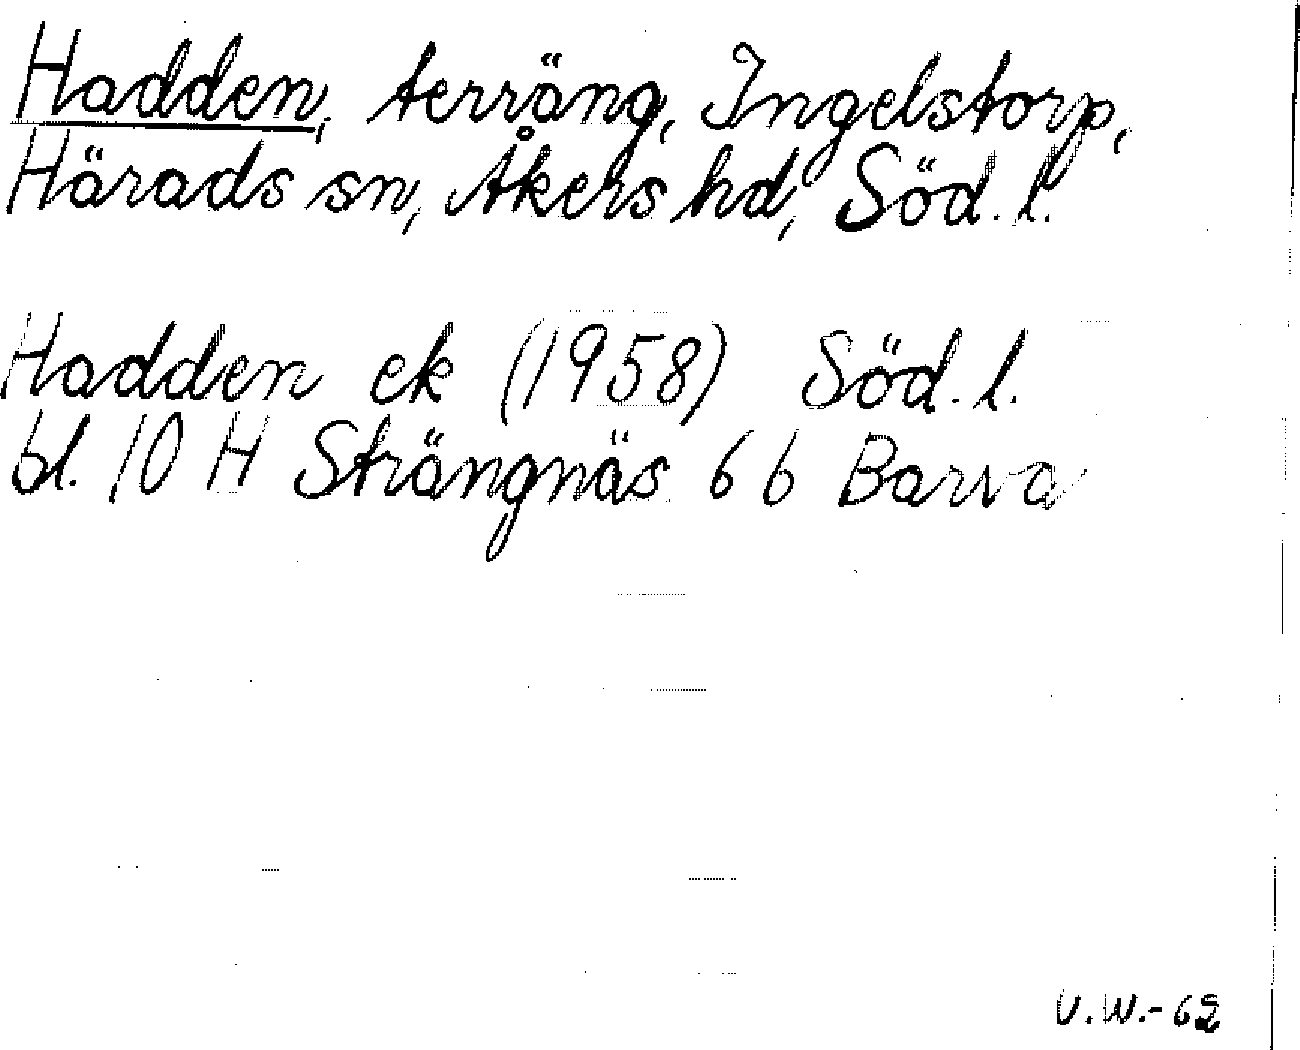 Hadden, terräng, Ingelstorp,
Härads sn, Åkers hd, Söd. l.
Hadden ek (1958) Söd. l.
bl. 10 H Strängnäs 6 b Barva
V.W.-62